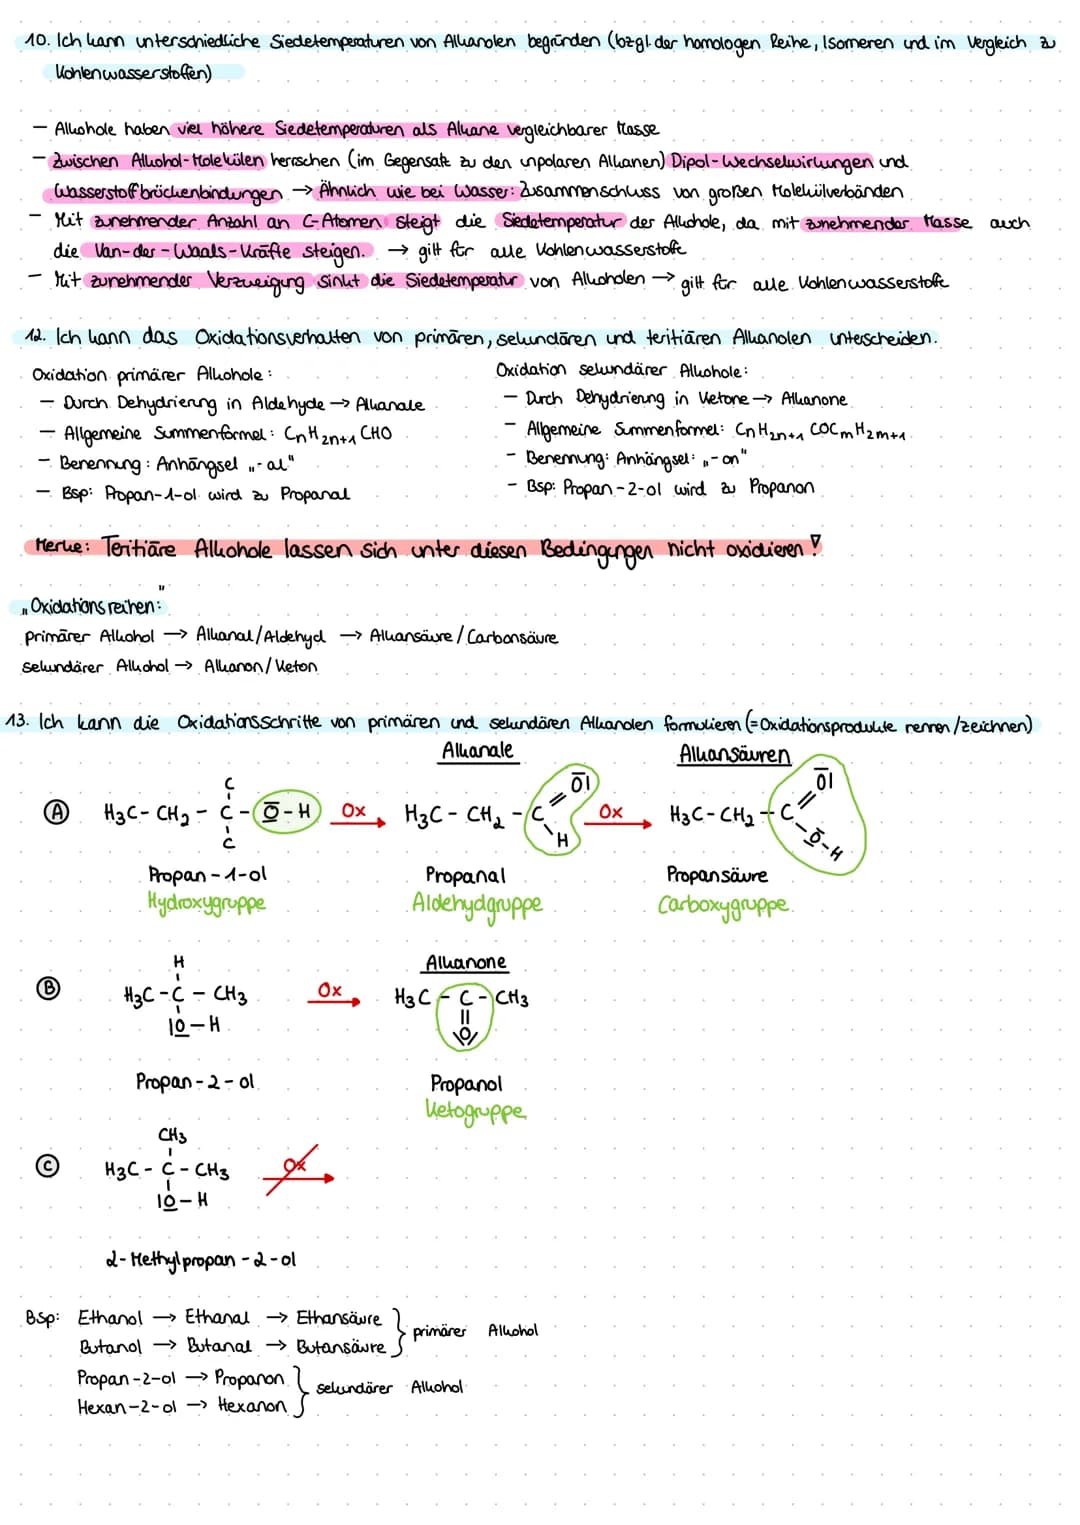 10. Ich kann unterschiedliche Siedetemperaturen von Alkanolen begründen (bzgl. der homologen Reihe, Isomeren und im Vergleich zu
Kohlenwasserstoffen)
- Alkohole haben viel höhere Siedetemperaturen als Alkane vergleichbarer Masse
- Zwischen Alkohol-Molekülen herrschen (im Gegensatz zu den unpolaren Alkanen) Dipol-Wechselwirkungen und
Wasserstoffbrückenbindungen → Ähnlich wie bei Wasser: Zusammenschluss von großen Molekülverbänden
- Mit zunehmender Anzahl an C-Atomen steigt die Siedetemperatur der Alkohole, da mit zunehmender Masse auch
die Van-der-Waals-Kräfte steigen. → gilt für alle Kohlenwasserstoffe
- Mit zunehmender Verzweigung sinkt die Siedetemperatur von Alkoholen → gilt für alle Kohlenwasserstoffe
12. Ich kann das Oxidationsverhalten von primären, sekundären und teritiären Alkanolen unterscheiden.
Oxidation primärer Alkohole:
- Durch Dehydrierung in Aldehyde → Alkanale
- Allgemeine Summenformel: CnH2n+1 CHO
- Benennung: Anhängsel „-al"
- Bsp: Propan-1-ol wird zu Propanal
Oxidation sekundärer Alkohole:
- Durch Dehydrierung in Ketone → Alkanone
- Allgemeine Summenformel: CnH2n+1 COCmH2m+1
- Benennung: Anhängsel: „-on"
- Bsp: Propan-2-ol wird zu Propanon
Merke: Teritiäre Alkohole lassen sich unter diesen Bedingungen nicht oxidieren!
„Oxidationsreihen:"
primärer Alkohol → Alkanal/Aldehyd → Alkansäure/Carbonsäure
sekundärer Alkohol → Alkanon/Keton
13. Ich kann die Oxidationsschritte von primären und sekundären Alkanolen formulieren (=Oxidationsprodukte nennen/zeichnen)
Alkanale Alkansäuren
C O̅| O̅|
A H3C-CH2-C-O̲̅-H Ox H3C-CH2-C Ox H3C-CH2-C
C H O̅-H
Propan-1-ol Propanal Propansäure
Hydroxygruppe Aldehydgruppe Carboxygruppe
H Alkanone
B H3C-C-CH3 Ox H3C-C-CH3
|O̲-H O
Propan-2-ol Propanol
Ketogruppe
CH3
C H3C-C-CH3 Ox
|O̲-H
2-Methylpropan-2-ol
Bsp: Ethanol → Ethanal → Ethansäure
Butanol → Butanal → Butansäure } primärer Alkohol
Propan-2-ol → Propanon
Hexan-2-ol → Hexanon } sekundärer Alkohol